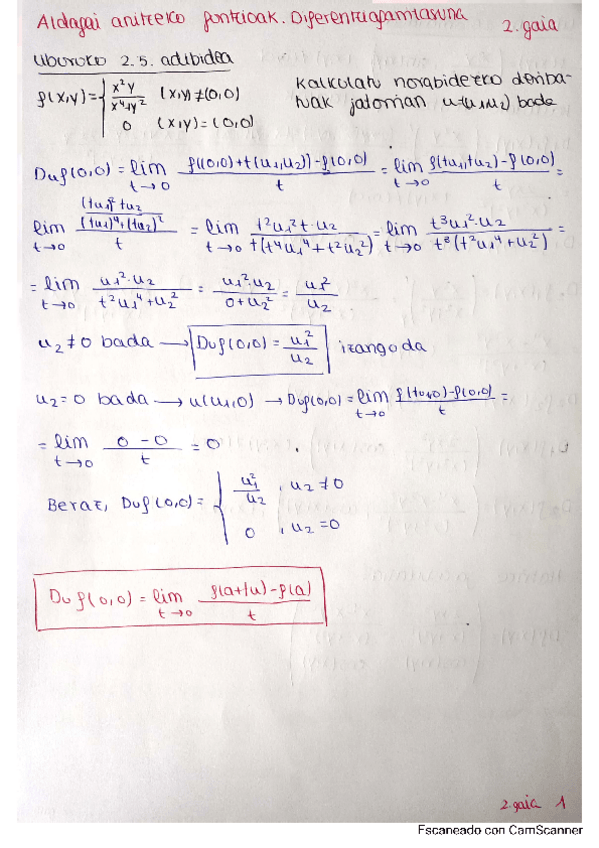 Aldagai anitzeko funtzioak. Diferentziagarritasuna 2. gaia
Liburuko 2.5. adibidea
f(x,y) = { x²y / x⁴+y² (x,y) ≠ (0,0) Kalkulatu norabidezko deriba-
0 (x,y) = (0,0) tuak jatorrian u=(u₁,u₂) bada
Duf(0,0) = lim t→0 f((0,0)+t(u₁,u₂)) - f(0,0) / t = lim t→0 f(tu₁,tu₂) - f(0,0) / t =
lim t→0 ((tu₁)² tu₂ / (tu₁)⁴+(tu₂)²) / t = lim t→0 t²u₁² t·u₂ / t(t⁴u₁⁴ + t²u₂²) = lim t→0 t³u₁²·u₂ / t³(t²u₁⁴+u₂²) =
= lim t→0 u₁²·u₂ / t²u₁⁴+u₂² = u₁²·u₂ / 0+u₂² = u₁² / u₂
u₂ ≠ 0 bada → Duf(0,0) = u₁² / u₂ izango da
u₂ = 0 bada → u(u₁,0) → Duf(0,0) = lim t→0 f(tu₁,0) - f(0,0) / t =
= lim t→0 0 - 0 / t = 0
Beraz, Duf(0,0) = { u₁² / u₂ , u₂ ≠ 0
0 , u₂ = 0
Duf(0,0) = lim t→0 f(a+tu) - f(a) / t
2. gaia 1
Escaneado con CamScanner